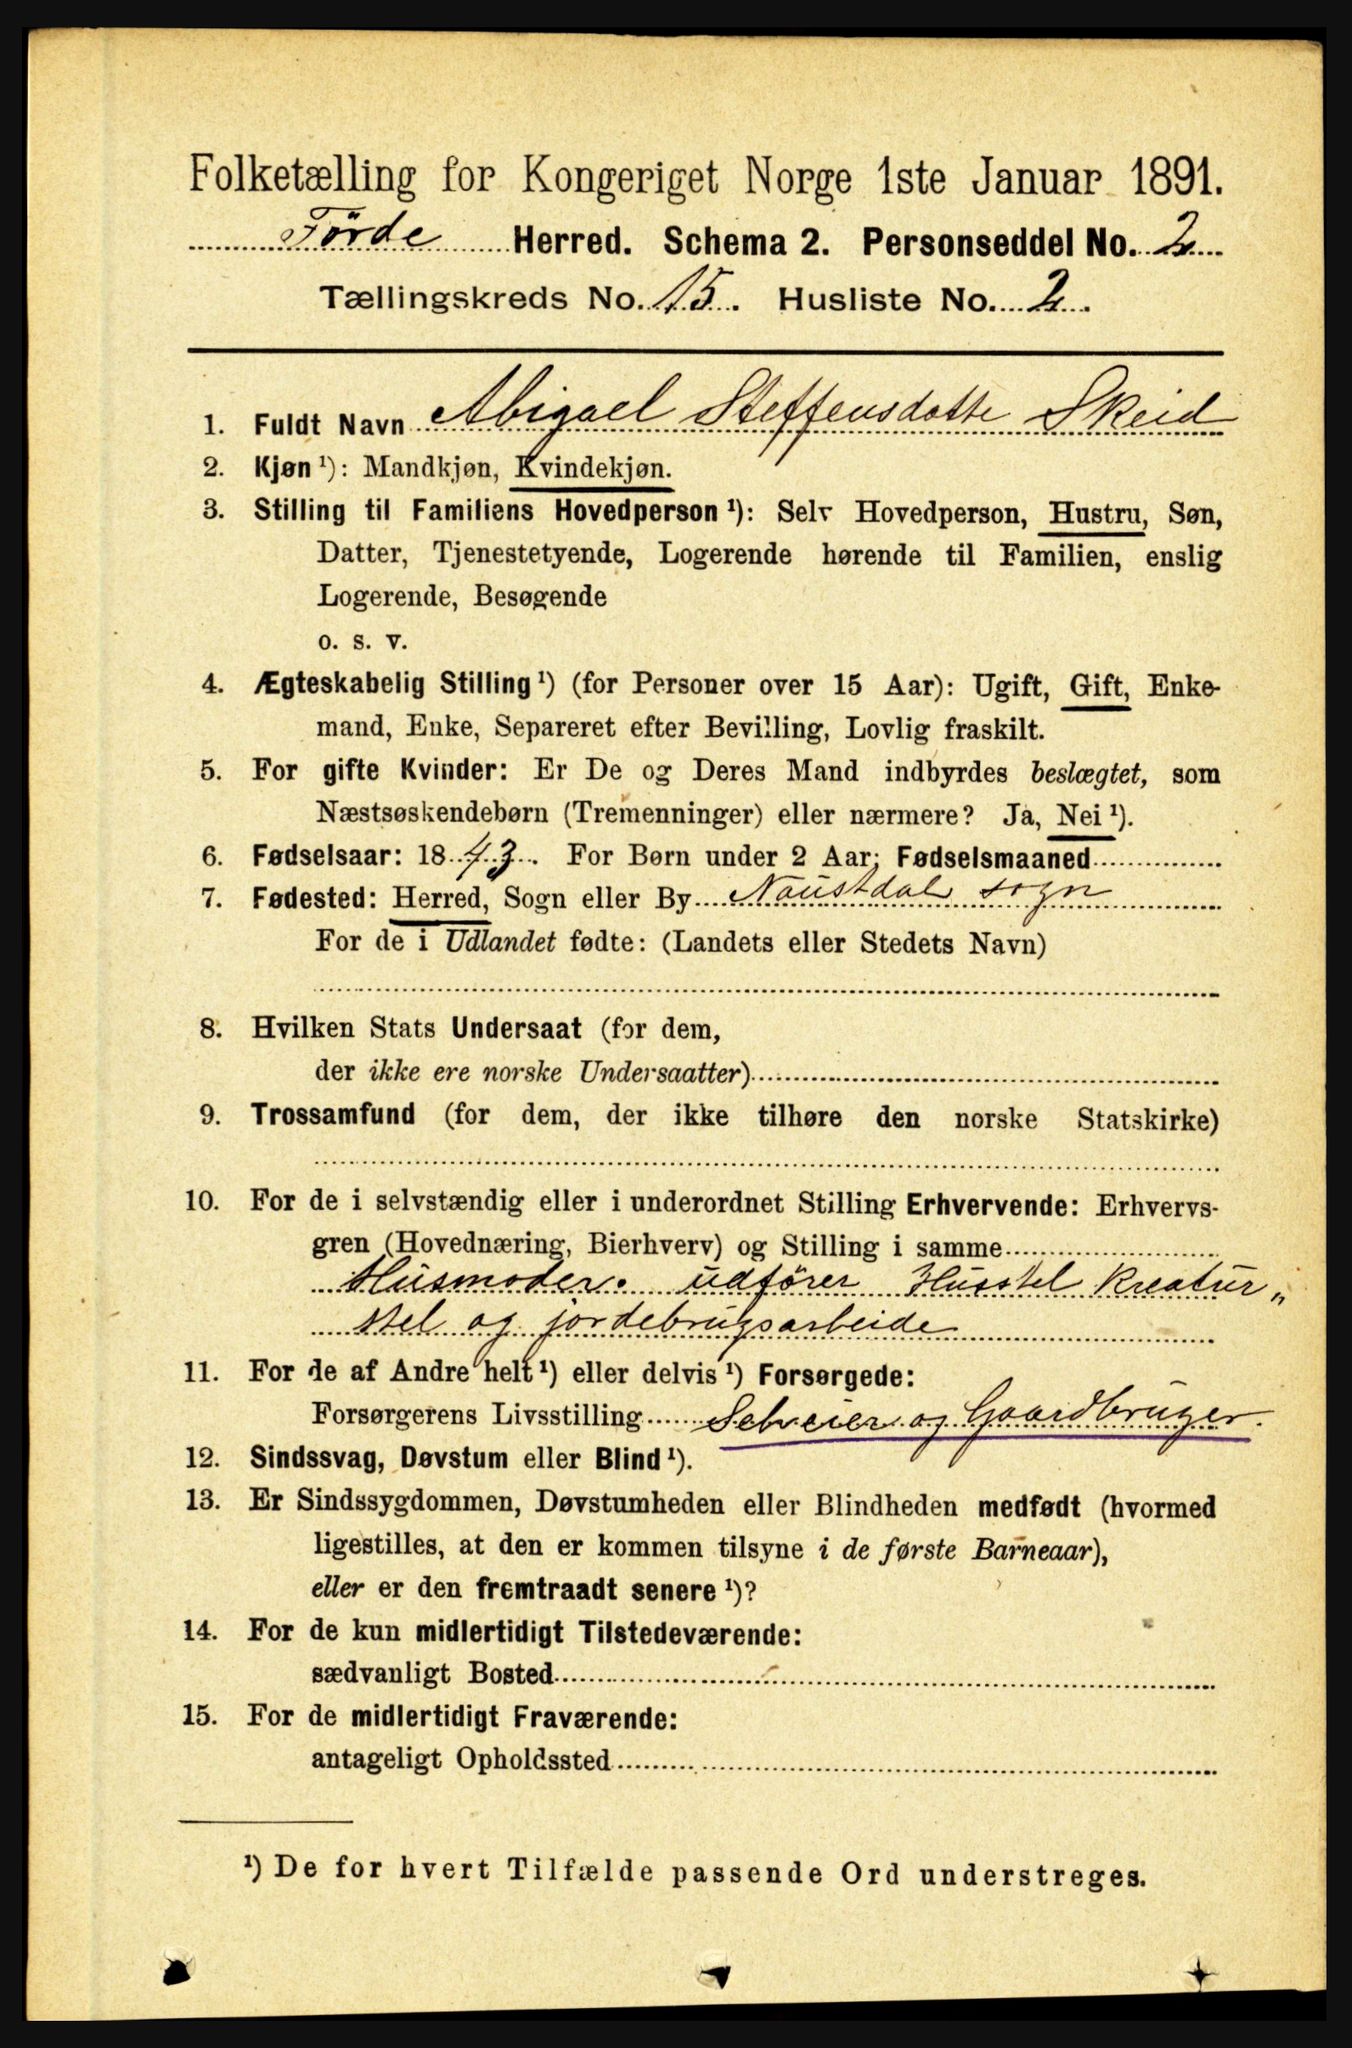 Folketælling for Kongeriget Norge 1ste Januar 1891.
Förde Herred. Schema 2. Personseddel No. 2
Tællingskreds No. 15. Husliste No. 2.
1. Fuldt Navn Abigael Steffensdotte Skeid
2. Kjøn ¹): Mandkjøn, Kvindekjøn.
3. Stilling til Familiens Hovedperson ¹): Selv Hovedperson, Hustru, Søn,
Datter, Tjenestetyende, Logerende hørende til Familien, enslig
Logerende, Besøgende
o. s. v.
4. Ægteskabelig Stilling ¹) (for Personer over 15 Aar): Ugift, Gift, Enke-
mand, Enke, Separeret efter Bevilling, Lovlig fraskilt.
5. For gifte Kvinder: Er De og Deres Mand indbyrdes beslægtet, som
Næstsøskendebørn (Tremenninger) eller nærmere? Ja, Nei ¹).
6. Fødselsaar: 1843. For Børn under 2 Aar: Fødselsmaaned
7. Fødested: Herred, Sogn eller By Naustdal sogn
For de i Udlandet fødte: (Landets eller Stedets Navn)
8. Hvilken Stats Undersaat (for dem,
der ikke ere norske Undersaatter)
9. Trossamfund (for dem, der ikke tilhøre den norske Statskirke)
10. For de i selvstændig eller i underordnet Stilling Erhvervende: Erhvervs-
gren (Hovednæring, Bierhverv) og Stilling i samme
Husmoder. udfører Husstel Kreatur„
stel og jordebrugsarbeide
11. For de af Andre helt ¹) eller delvis ¹) Forsørgede:
Forsørgerens Livsstilling Selveier og Gaardbruger.
12. Sindssvag, Døvstum eller Blind ¹).
13. Er Sindssygdommen, Døvstumheden eller Blindheden medfødt (hvormed
ligestilles, at den er kommen tilsyne i de første Barneaar),
eller er den fremtraadt senere ¹)?
14. For de kun midlertidigt Tilstedeværende:
sædvanligt Bosted
15. For de midlertidigt Fraværende:
antageligt Opholdssted
¹) De for hvert Tilfælde passende Ord understreges.